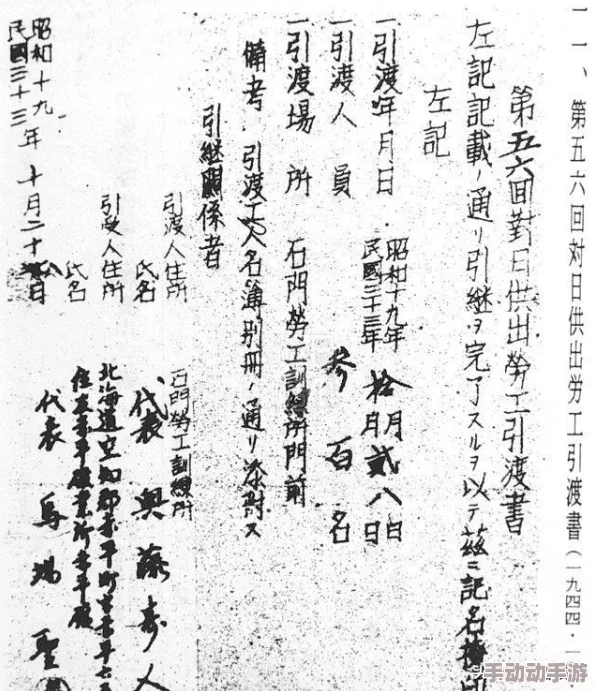 一一、第五六回対日供出労工引渡書(一九四四·一
第五六回對日供出勞工引渡書
左記記載ノ通リ引継ヲ完了スルヲ以テ茲ニ記名捺印
左記
一引渡年月日 昭和十九年 民國三十三年 拾月貳八日
一引渡人員 參百名
一引渡場所 石門勞工訓練所門前
備考 引渡工人名簿別冊ノ通リ添附ス
引継關係者
引渡人住所 石門勞工訓練所
氏名 代表
引受人住所 北海道空知郡赤平町
氏名 代表 馬場
昭和十九
民國三十三年十月二十八日
手动动手游